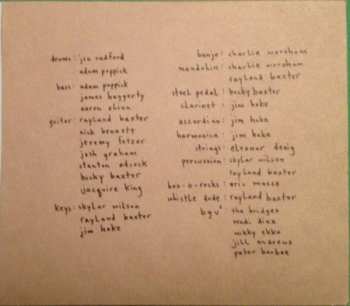 drums: jon radford
adam popick
bass: adam popick
james haggerty
aaron shinn
guitar: rayland baxter
nick bennett
jeremy fetzer
josh graham
stanton edcock
bucky baxter
jacquire king
keys: skylar wilson
rayland baxter
jim hoke
banjo: charlie worsham
mandolin: charlie worsham
rayland baxter
steel pedal: bucky baxter
clarinet: jim hoke
accordian: jim hoke
harmonica: jim hoke
strings: eleonor denig
percussion: skylar wilson
rayland baxter
box-o-rocks: eric masse
whistle dude: rayland baxter
bgv's: the bridges
madi diaz
mikky ekko
jill andrews
peter barbee